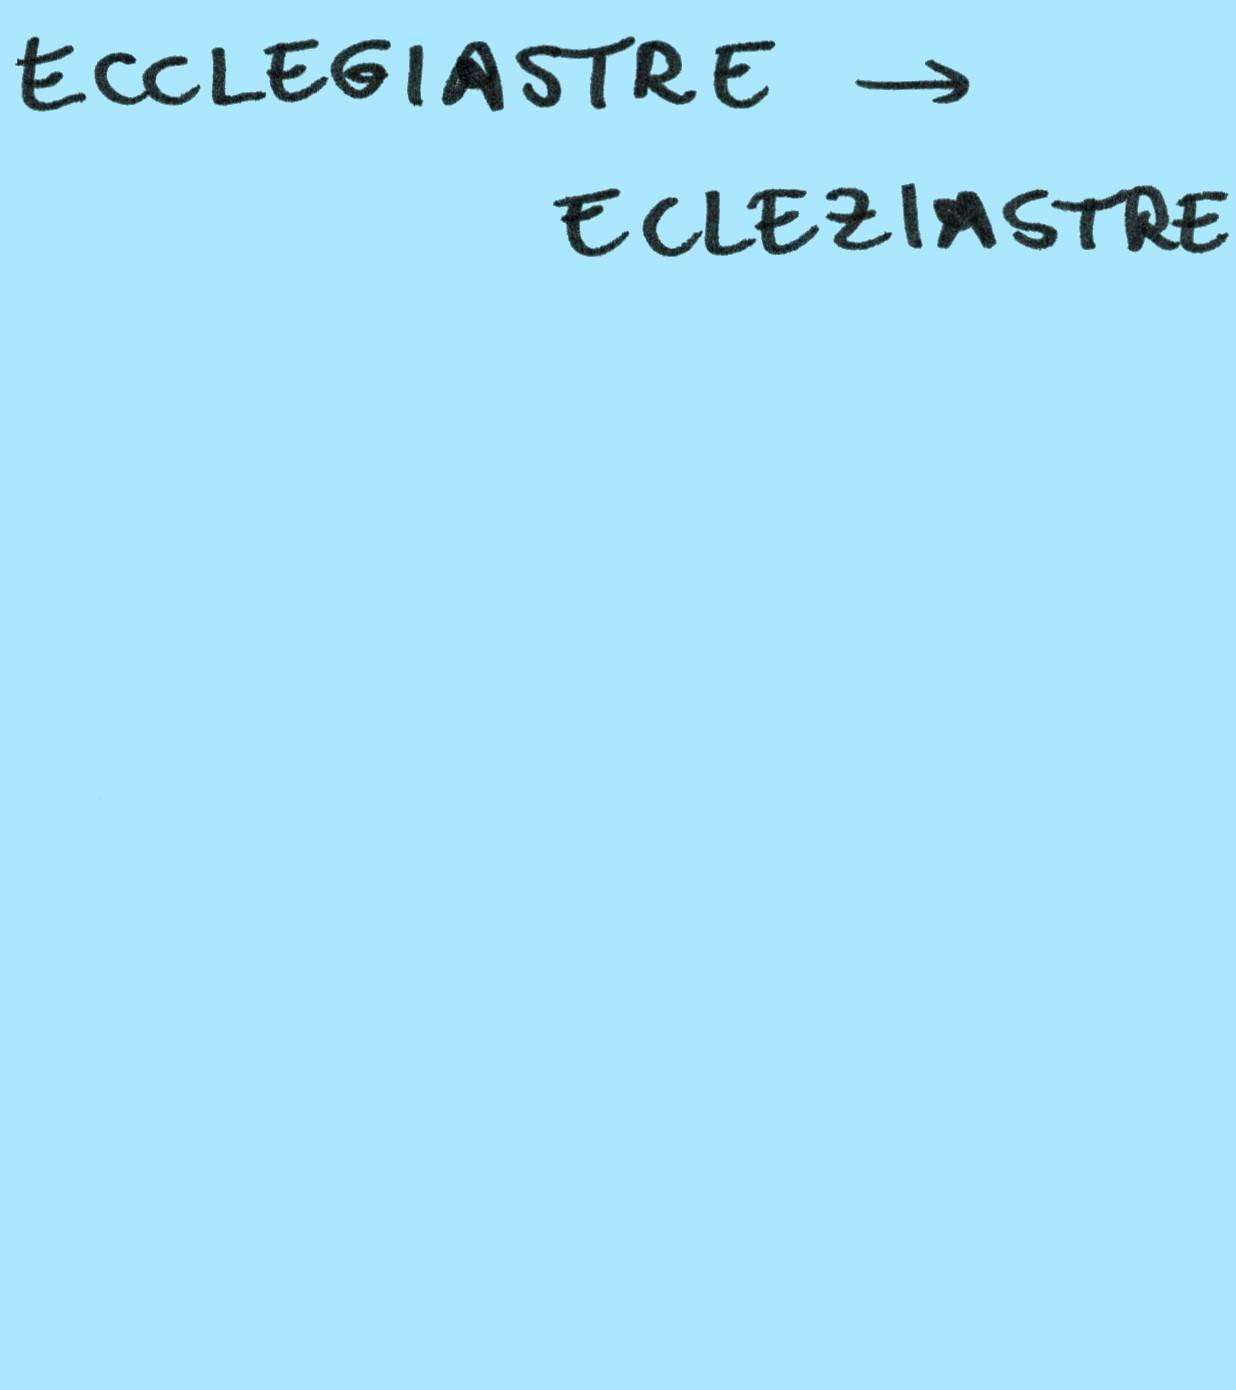 ECCLEGIASTRE →
ECLEZIASTRE